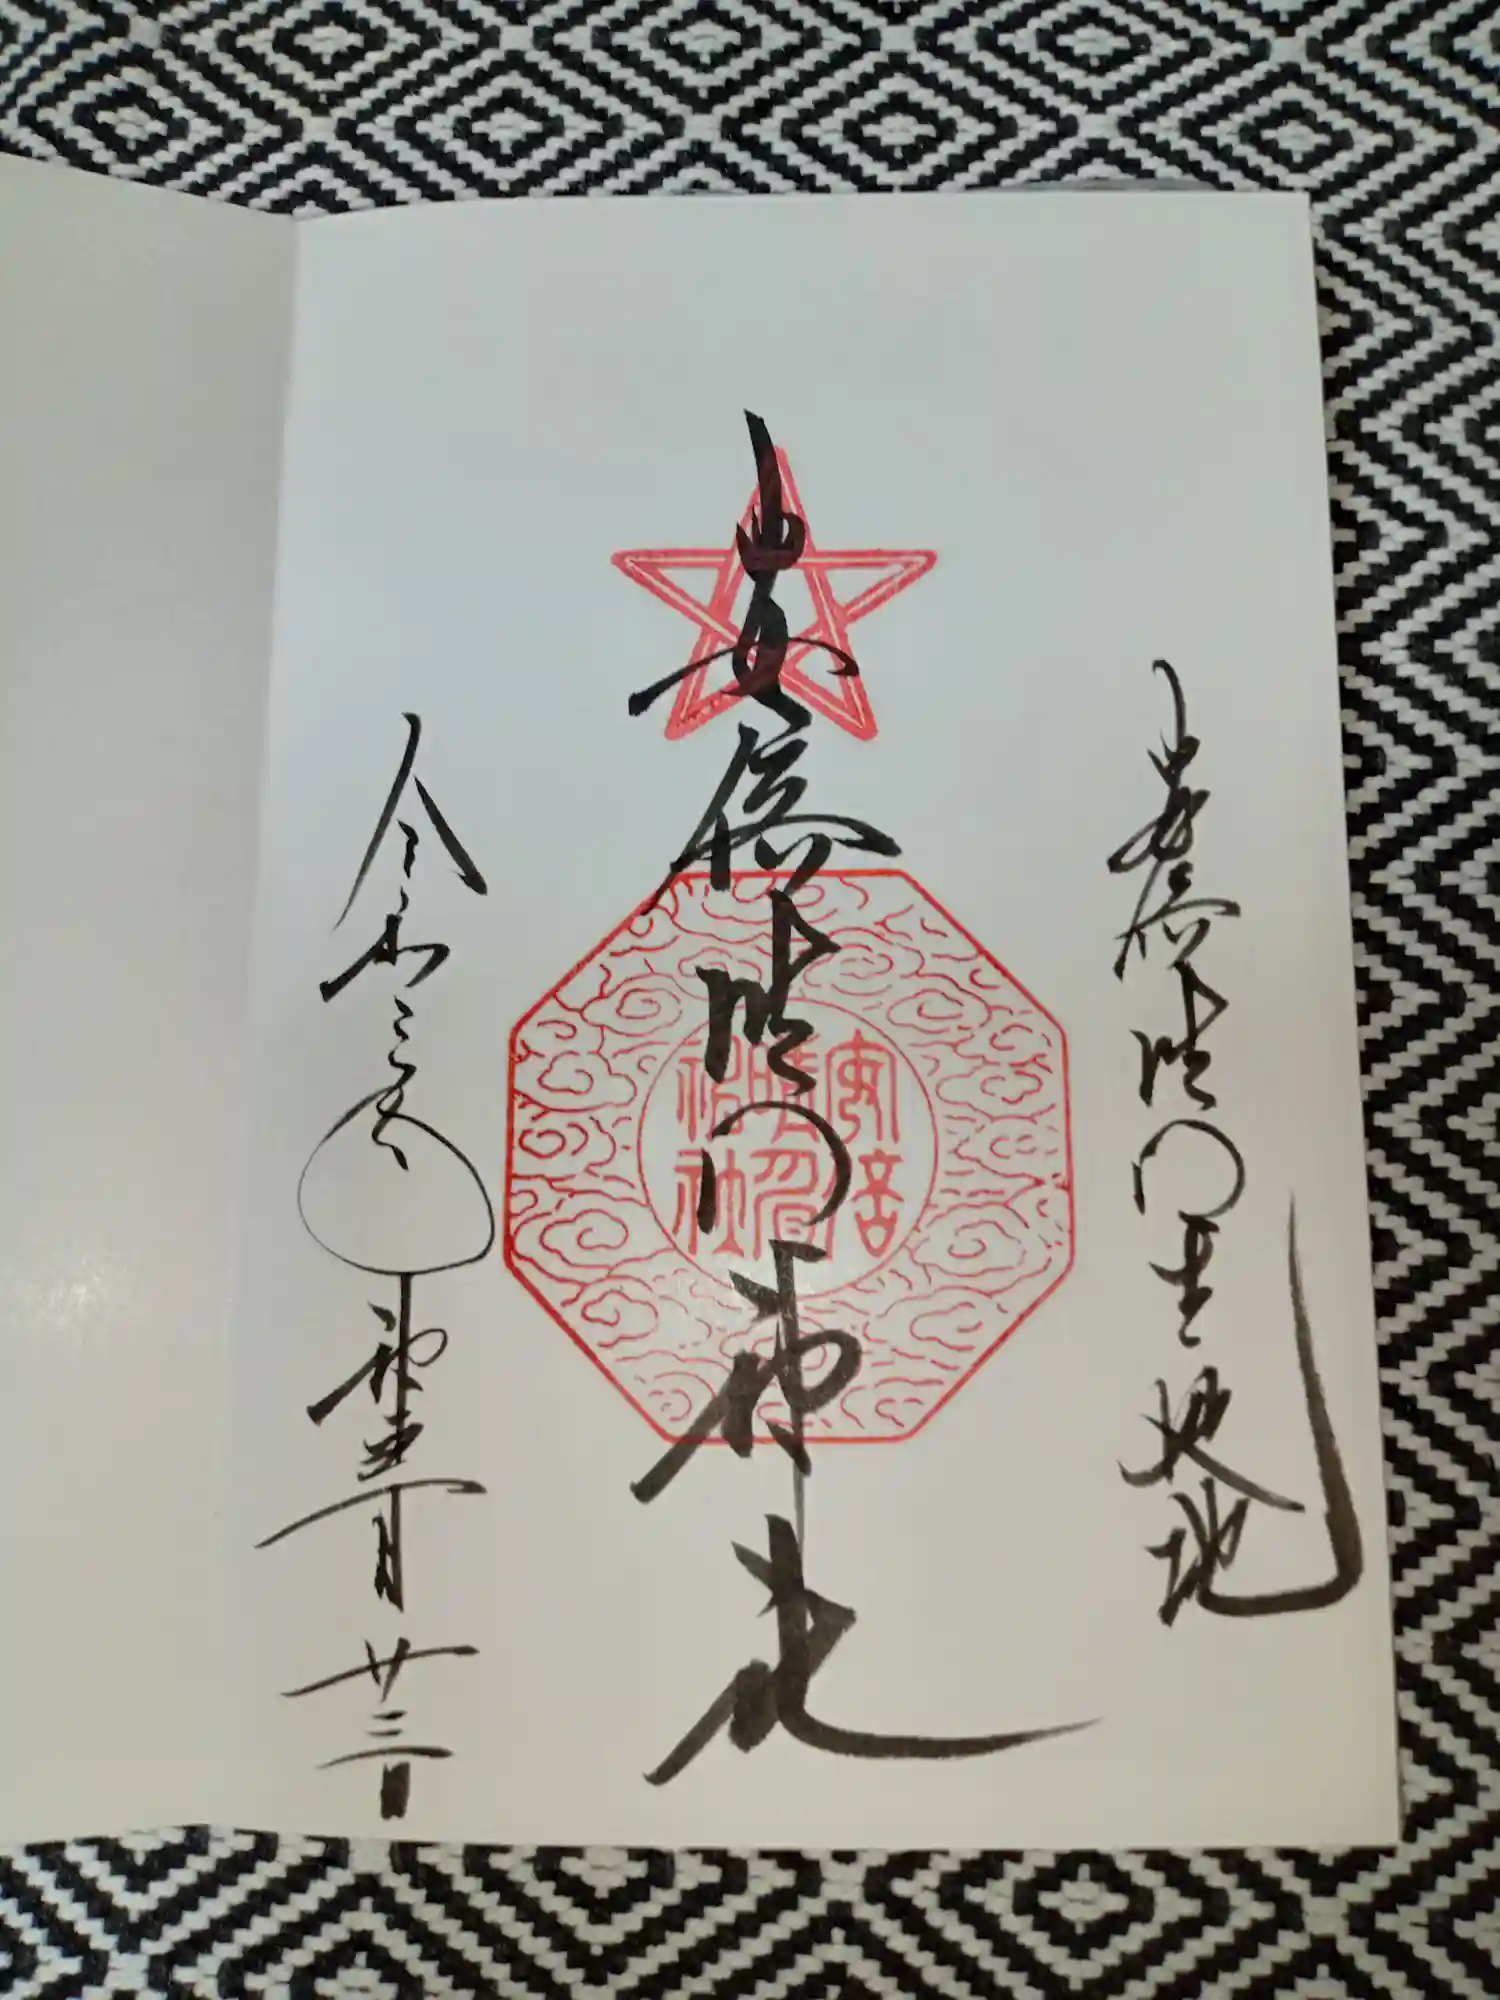 安倍晴明生誕地
安倍晴明神社
安倍
晴明
神社
令和三年神無月廿三日